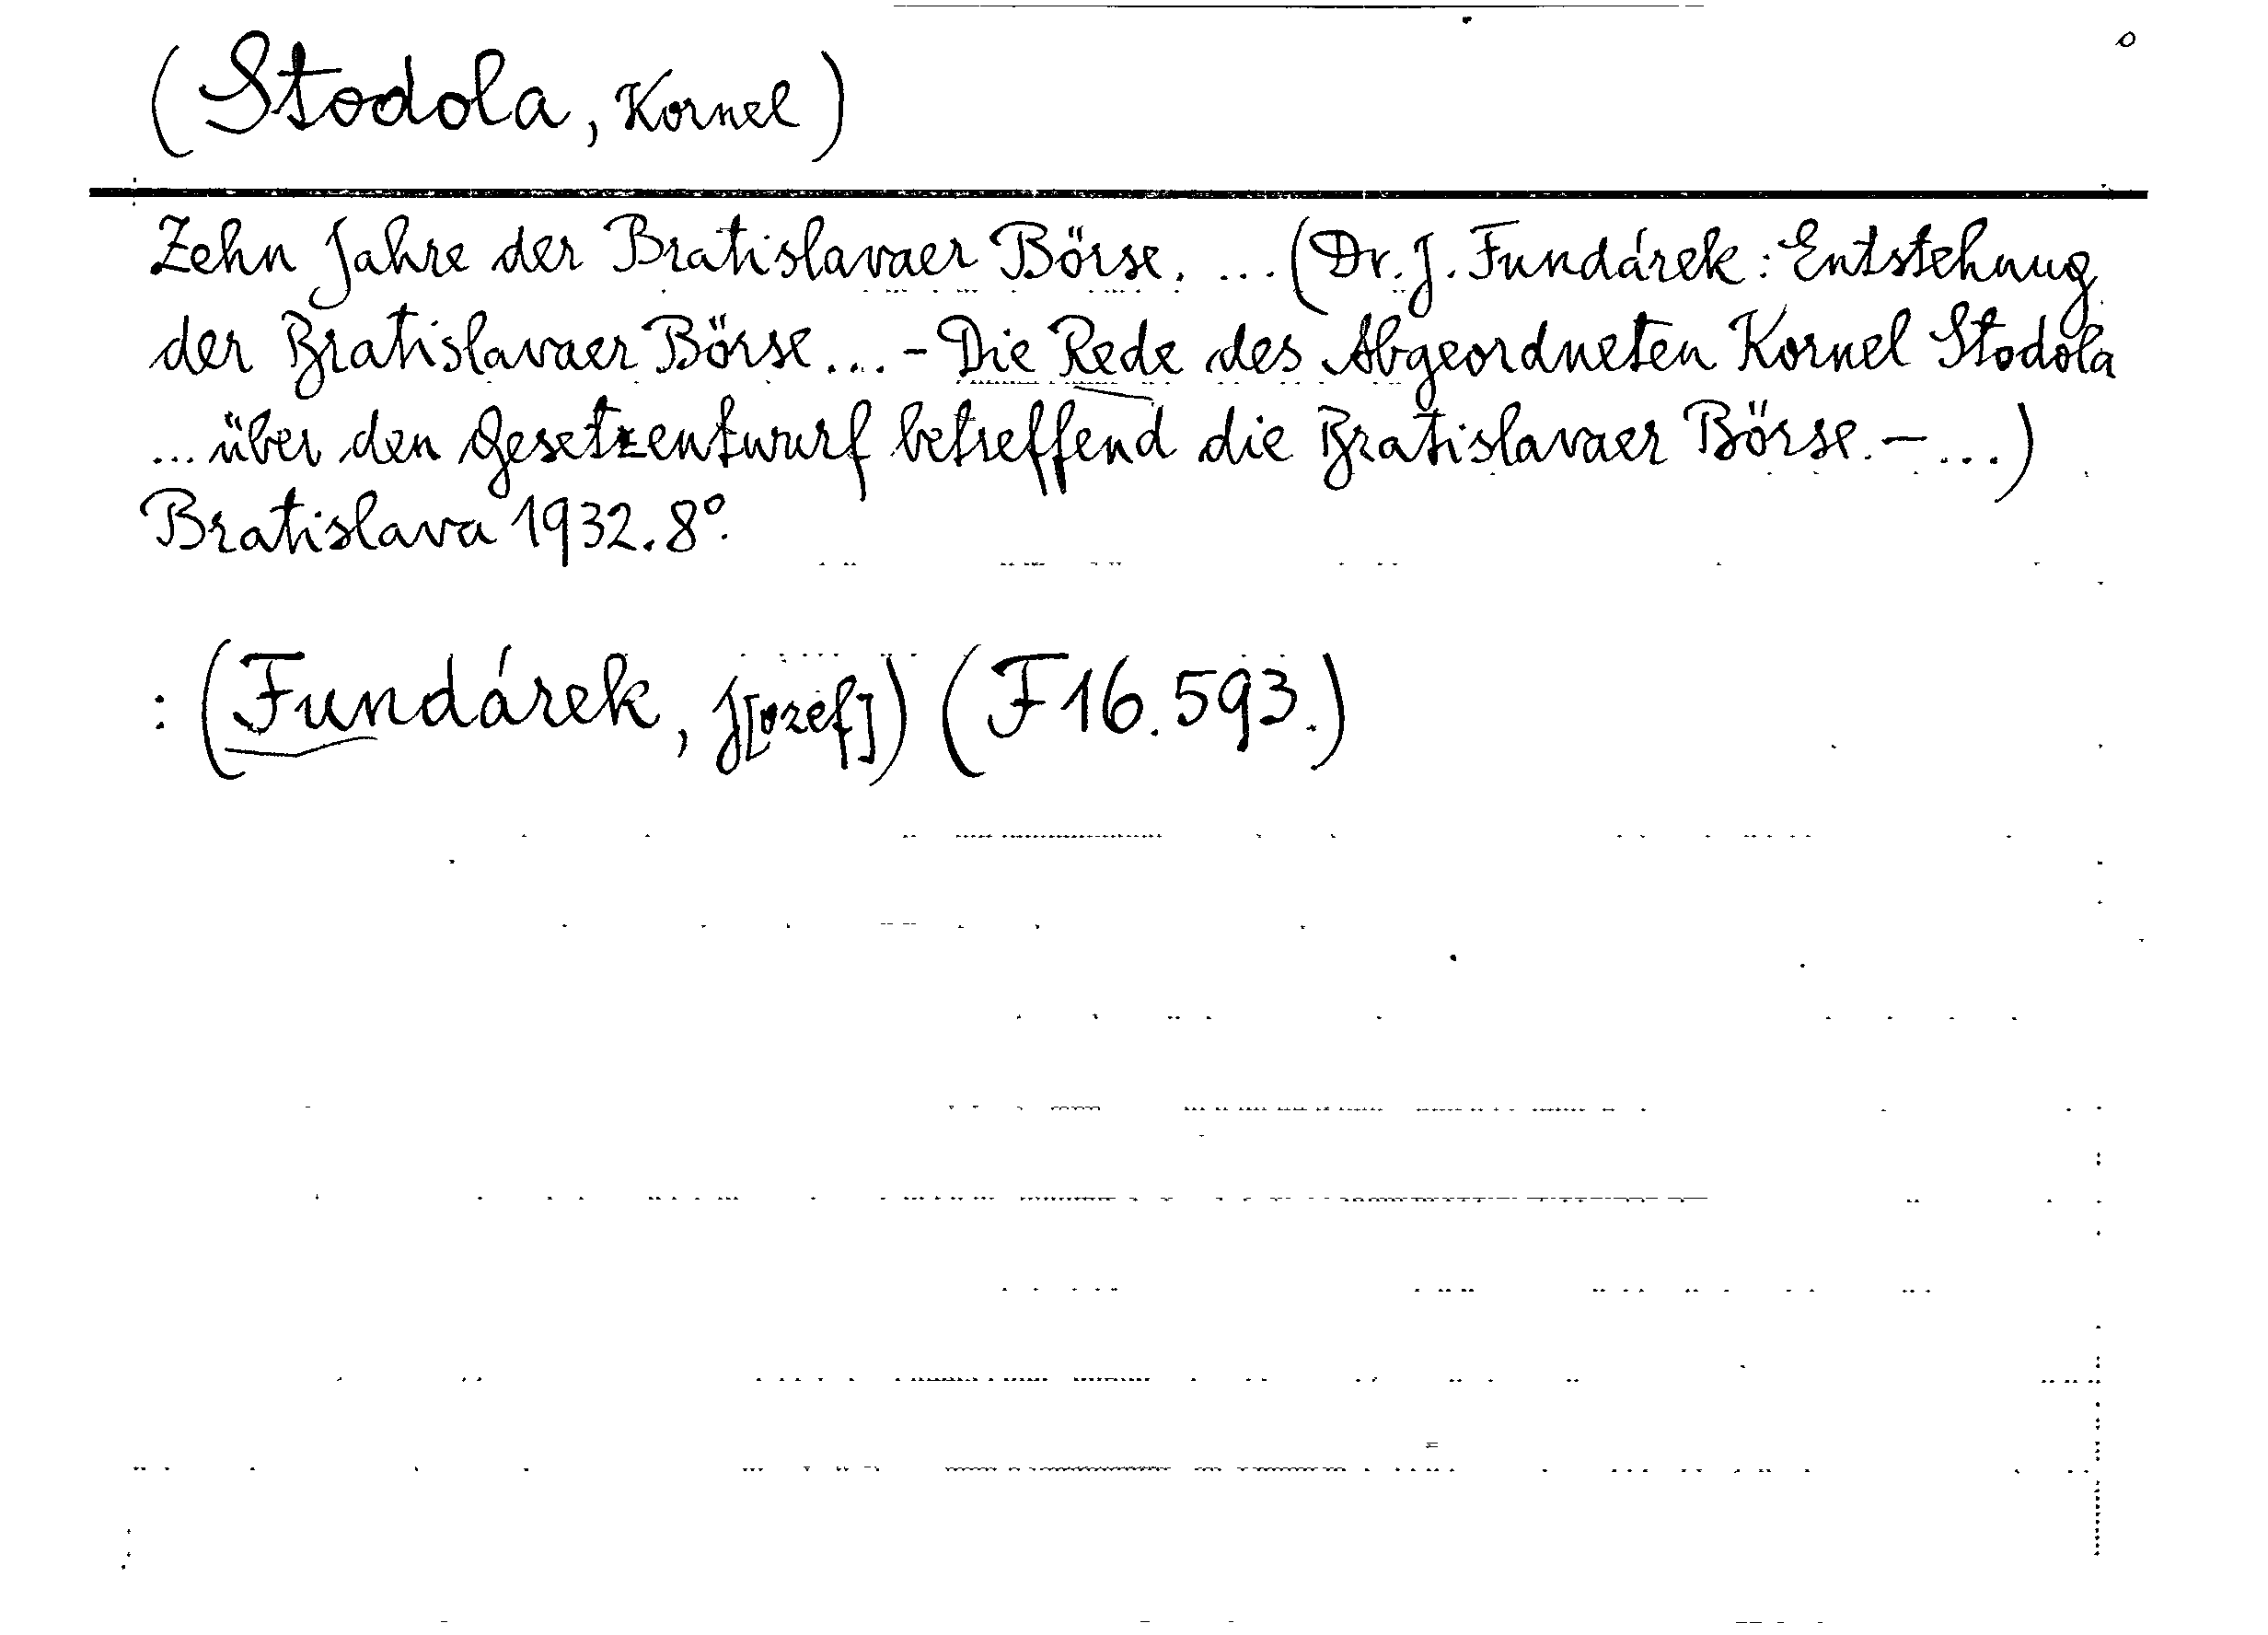 (Stodola, Kornel)
Zehn Jahre der Bratislavaer Börse. ... (Dr. J. Fundárek: Entstehung
der Bratislavaer Börse... - Die Rede des Abgeordneten Kornel Stodola
... über den Gesetzentwurf betreffend die Bratislavaer Börse. - ...)
Bratislava 1932. 8°.
: (Fundárek, J[ozef]) (F 16.593.)